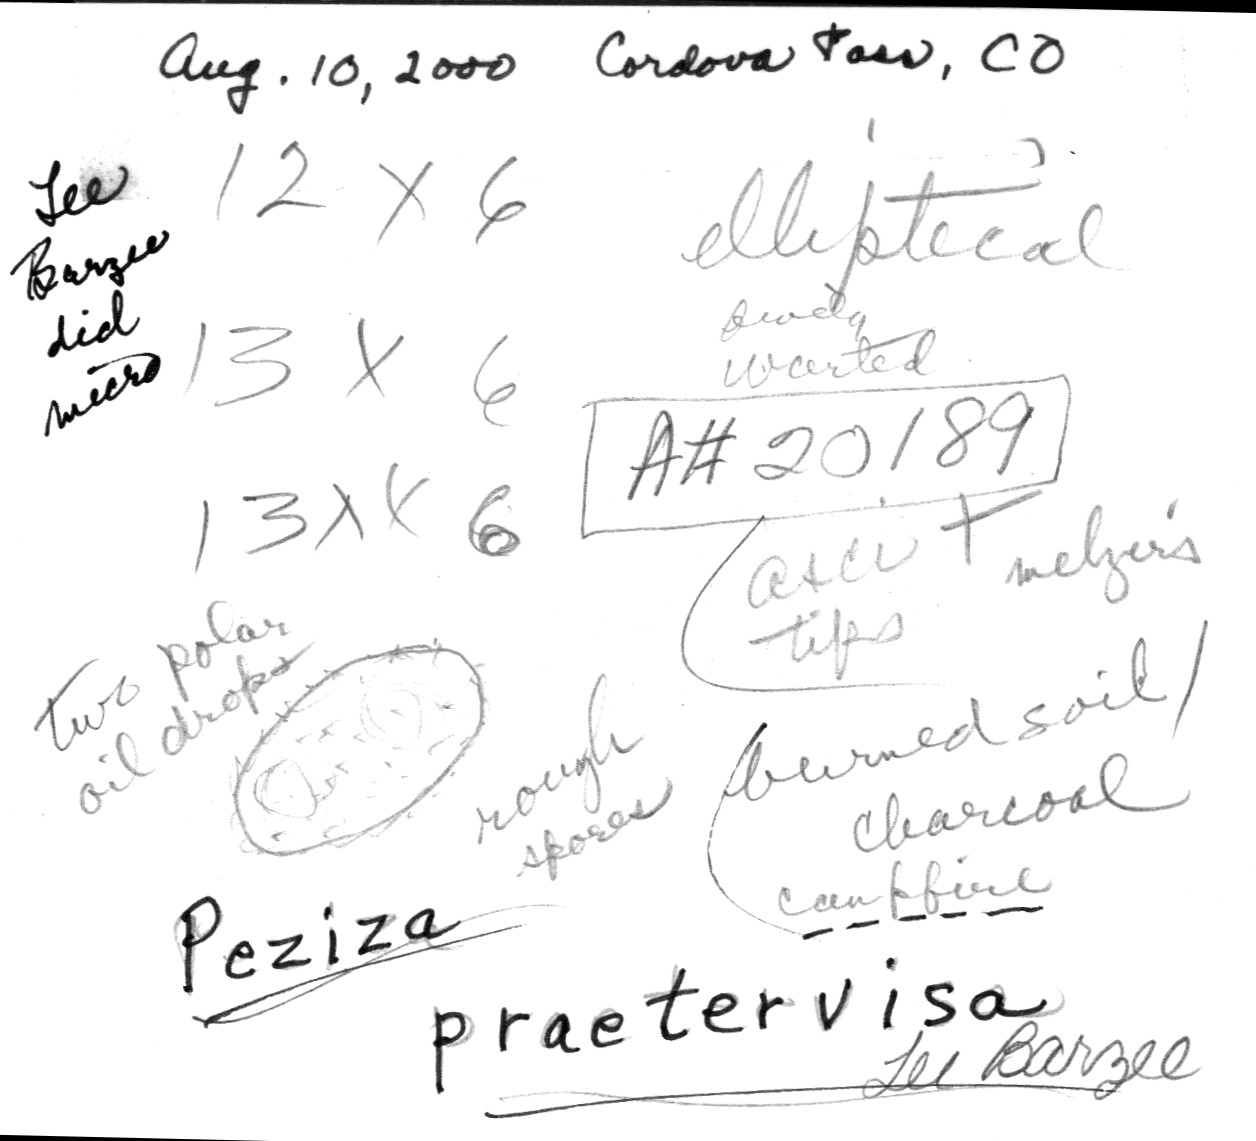 Aug. 10, 2000 Cordova Pass, CO
Lee
Barzee
did
micro
12 x 6
13 x 6
13 x x 6
elliptical
warted
A# 20189
asci + melzer's
tips
two polar
oil drops
rough
spores
burned soil/
charcoal
campfire
Peziza
praetervisa
Lee Barzee